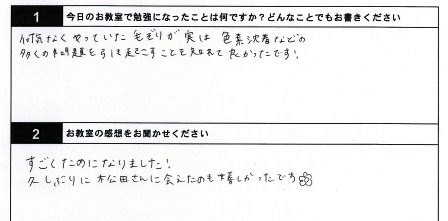 1 今日のお教室で勉強になったことは何ですか？どんなことでもお書きください
何気なくやっていた毛ぞりが実は色素沈着などの
多くの問題を引き起こすことを知れて良かったです！
2 お教室の感想をお聞かせください
すごくためになりました！
久しぶりに松田さんに会えたのも嬉しかったです